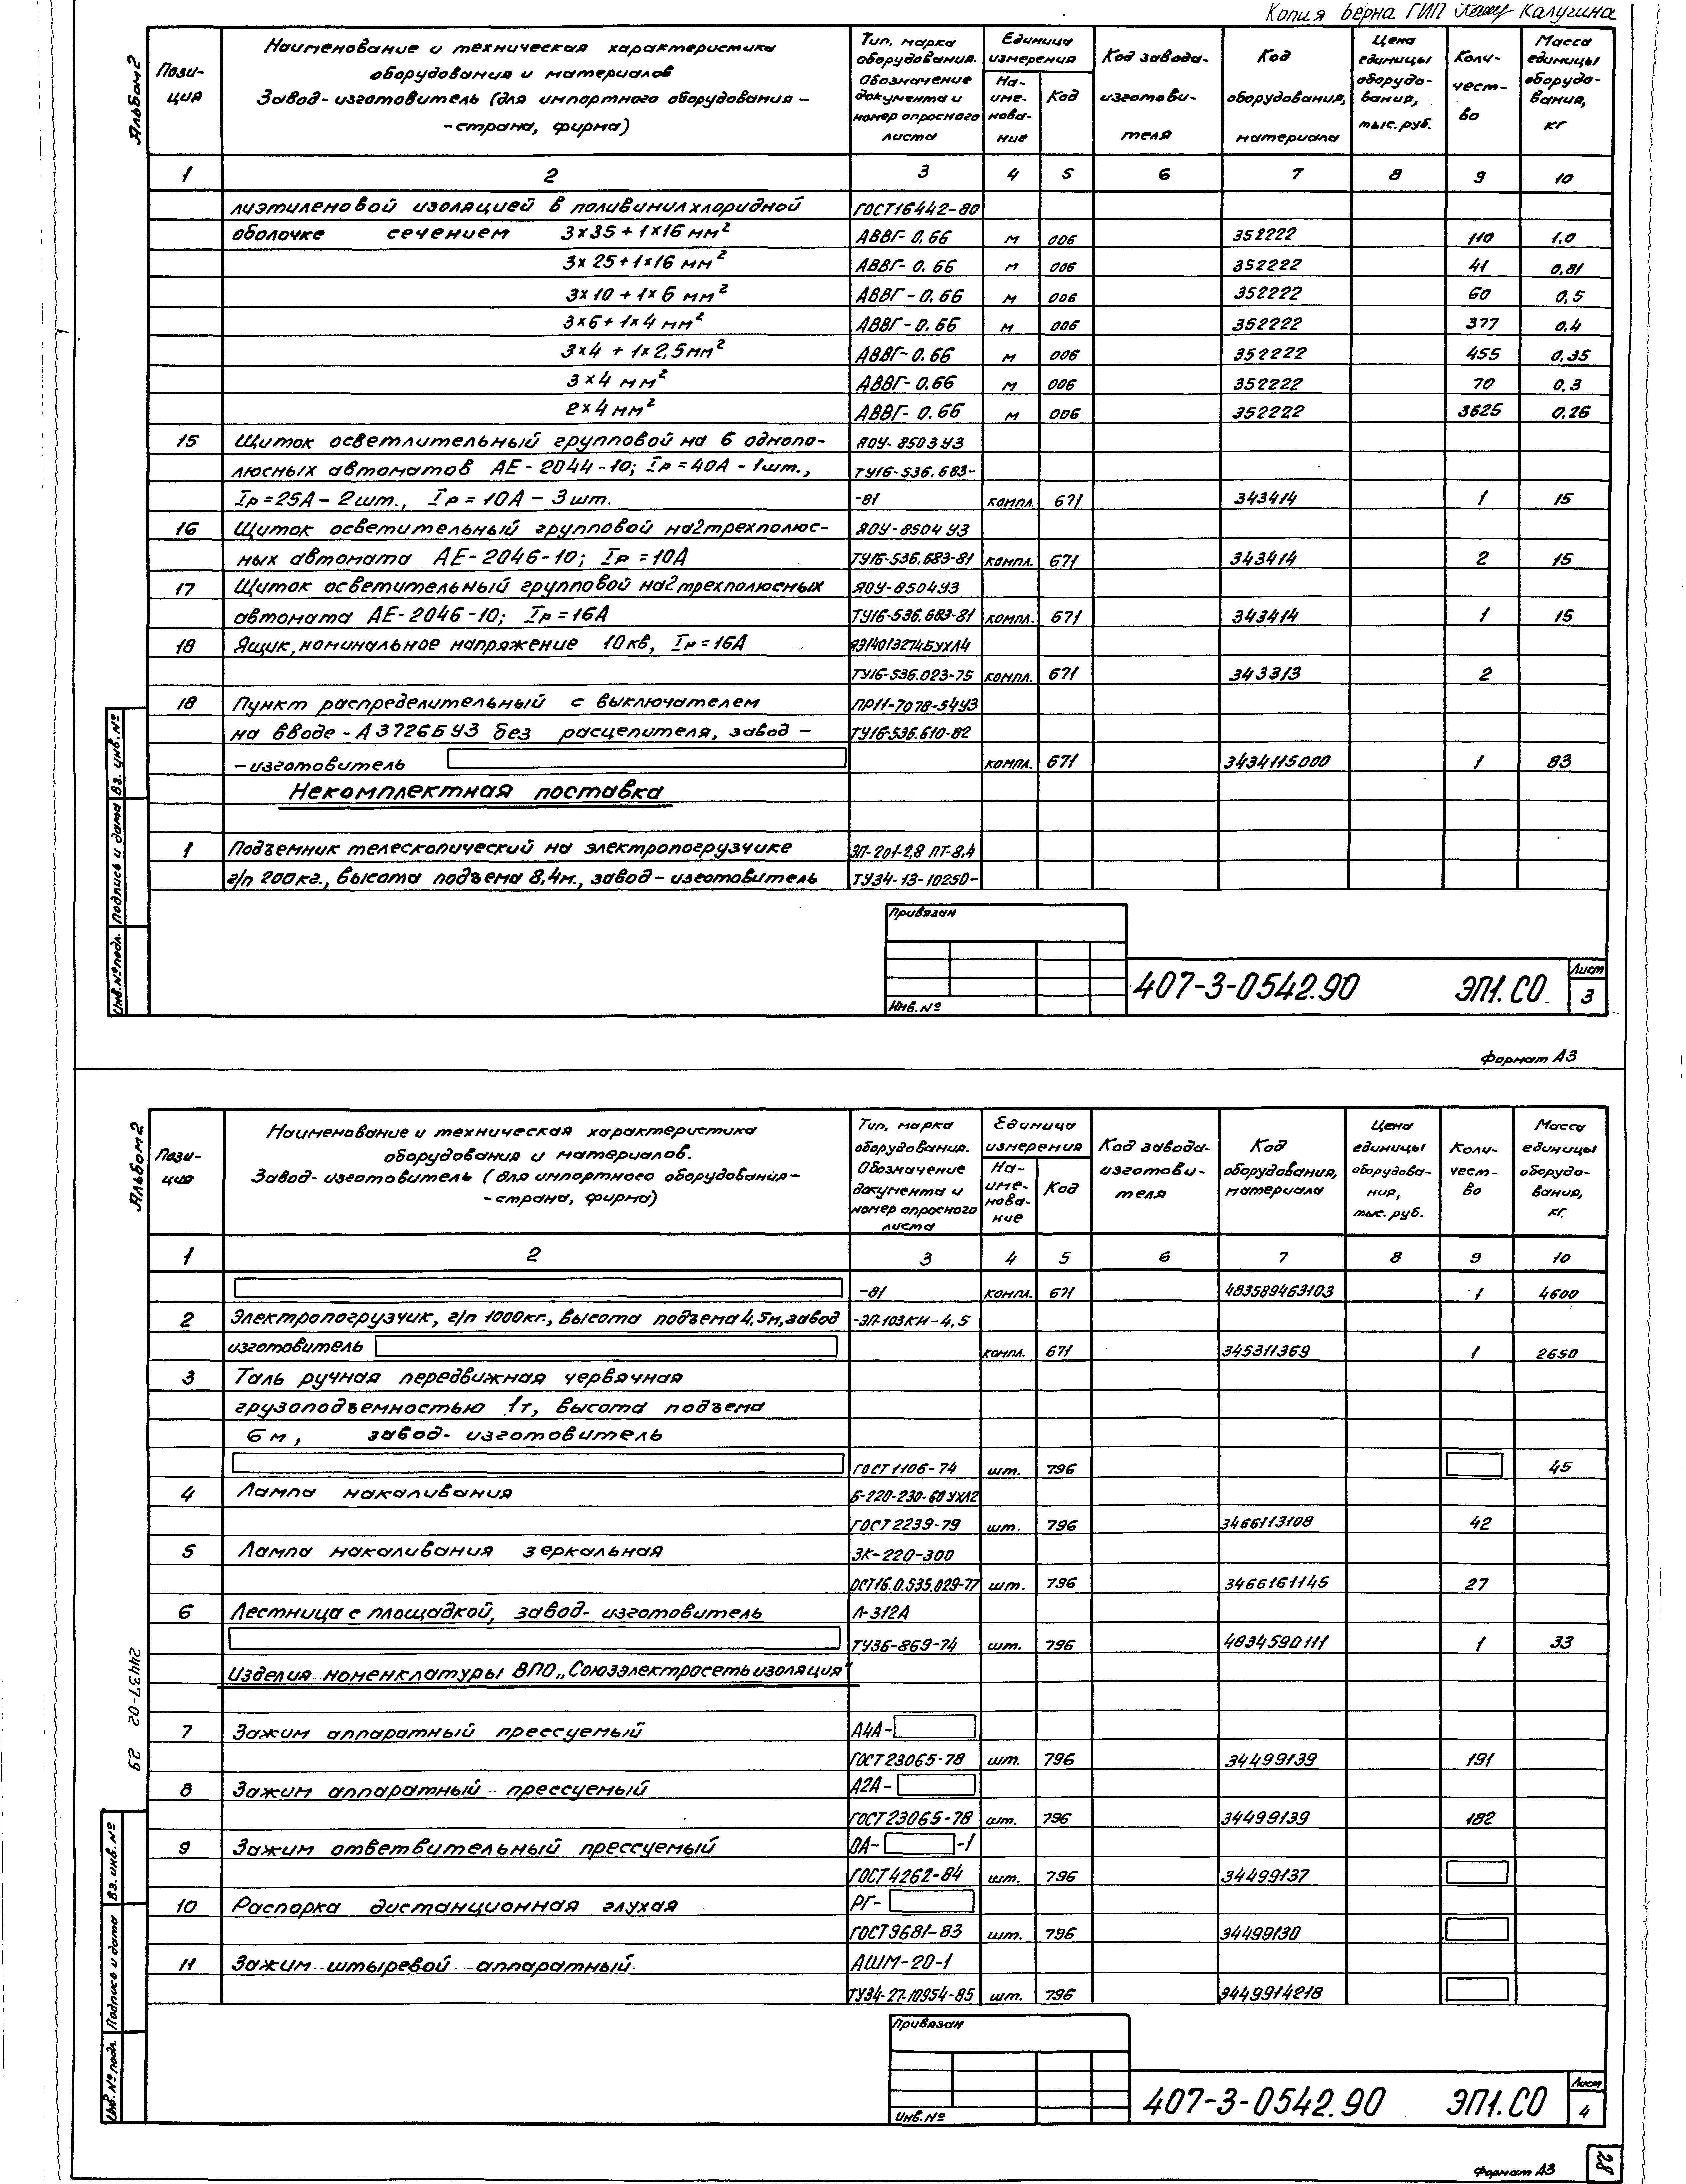 Копия верна ГИП Калугина
Альбом 2
Пози-
ция
Наименование и техническая характеристика
оборудования и материалов
Завод-изготовитель (для импортного оборудования -
-страна, фирма)
Тип, марка
оборудования.
Обозначение
документа и
номер опросного
листа
Единица
измерения
На-
име-
нова-
ние
Код
Код завода-
изготови-
теля
Код
оборудования,
материала
Цена
единицы
оборудо-
вания,
тыс. руб.
Коли-
чест-
во
Масса
единицы
оборудо-
вания,
кг
1 2 3 4 5 6 7 8 9 10
лиэтиленовой изоляцией в поливинилхлоридной ГОСТ16442-80
оболочке сечением 3×35+1×16мм² АВВГ-0,66 м 006 352222 110 1,0
3×25+1×16 мм² АВВГ-0,66 м 006 352222 41 0,81
3×10+1×6 мм² АВВГ-0,66 м 006 352222 60 0,5
3×6+1×4 мм² АВВГ-0,66 м 006 352222 377 0,4
3×4+1×2,5мм² АВВГ-0,66 м 006 352222 455 0,35
3×4 мм² АВВГ-0,66 м 006 352222 70 0,3
2×4 мм² АВВГ-0,66 м 006 352222 3625 0,26
15 Щиток осветлительный групповой на 6 однопо- ЯОУ-8503У3
люсных автоматов АЕ-2044-10; Iр=40А-1шт., ТУ16-536.683-
Iр=25А-2шт., Iр=10А-3шт. -81 компл. 671 343414 1 15
16 Щиток осветительный групповой на 2 трехполюс- ЯОУ-8504У3
ных автомата АЕ-2046-10; Iр=10А ТУ16-536.683-81 компл. 671 343414 2 15
17 Щиток осветительный групповой на 2 трехполюсных ЯОУ-8504У3
автомата АЕ-2046-10; Iр=16А ТУ16-536.683-81 компл. 671 343414 1 15
18 Ящик, номинальное напряжение 10кв, Iр=16А ЯЭ14013274БУХЛ4
ТУ16-536.023-75 компл. 671 343313 2
18 Пункт распределительный с выключателем ПР11-7078-54У3
на вводе-А3726БУ3 без расцепителя, завод- ТУ16-536.610-82
-изготовитель компл. 671 3434115000 1 83
Некомплектная поставка
1 Подъемник телескопический на электропогрузчике ЭП-201-2,8 ПТ-8,4
г/п 200кг., высота подъема 8,4м., завод-изготовитель ТУ34-13-10250-
Инв.№подл. Подпись и дата Вз. инв.№
Привязан
Инв.№
407-3-0542.90 ЭП1.СО
Лист
3
Формат А3
Альбом 2
Пози-
ция
Наименование и техническая характеристика
оборудования и материалов.
Завод-изготовитель (для импортного оборудования-
-страна, фирма)
Тип, марка
оборудования.
Обозначение
документа и
номер опросного
листа
Единица
измерения
На-
име-
нова-
ние
Код
Код завода-
изготови-
теля
Код
оборудования,
материала
Цена
единицы
оборудова-
ния,
тыс. руб.
Коли-
чест-
во
Масса
единицы
оборудо-
вания,
кг.
1 2 3 4 5 6 7 8 9 10
-81 компл. 671 483589463103 1 4600
2 Электропогрузчик, г/п 1000кг., высота подъема 4,5м, завод -ЭП-103КН-4,5
изготовитель компл. 671 345311369 1 2650
3 Таль ручная передвижная червячная
грузоподъемностью 1т, высота подъема
6м, завод-изготовитель
ГОСТ 1106-74 шт. 796 45
4 Лампа накаливания Б-220-230-60УХЛ2
ГОСТ 2239-79 шт. 796 3466113108 42
5 Лампа накаливания зеркальная ЗК-220-300
ОСТ16.0.535.029-77 шт. 796 3466161145 27
6 Лестница с площадкой, завод-изготовитель Л-312А
ТУ36-869-74 шт. 796 4834590111 1 33
Изделия номенклатуры ВПО „Союзэлектросетьизоляция"
7 Зажим аппаратный прессуемый А4А-
ГОСТ 23065-78 шт. 796 34499139 191
8 Зажим аппаратный прессуемый А2А-
ГОСТ 23065-78 шт. 796 34499139 182
9 Зажим ответвительный прессуемый ОА- -1
ГОСТ 4262-84 шт. 796 34499137
10 Распорка дистанционная глухая РГ-
ГОСТ 9681-83 шт. 796 34499130
11 Зажим штыревой аппаратный АШМ-20-1
ТУ34-27-10954-85 шт. 796 3449914218
24437-02 29
Инв.№подл. Подпись и дата Вз. инв.№
Привязан
Инв.№
407-3-0542.90 ЭП1.СО
Лист
4
Формат А3
28